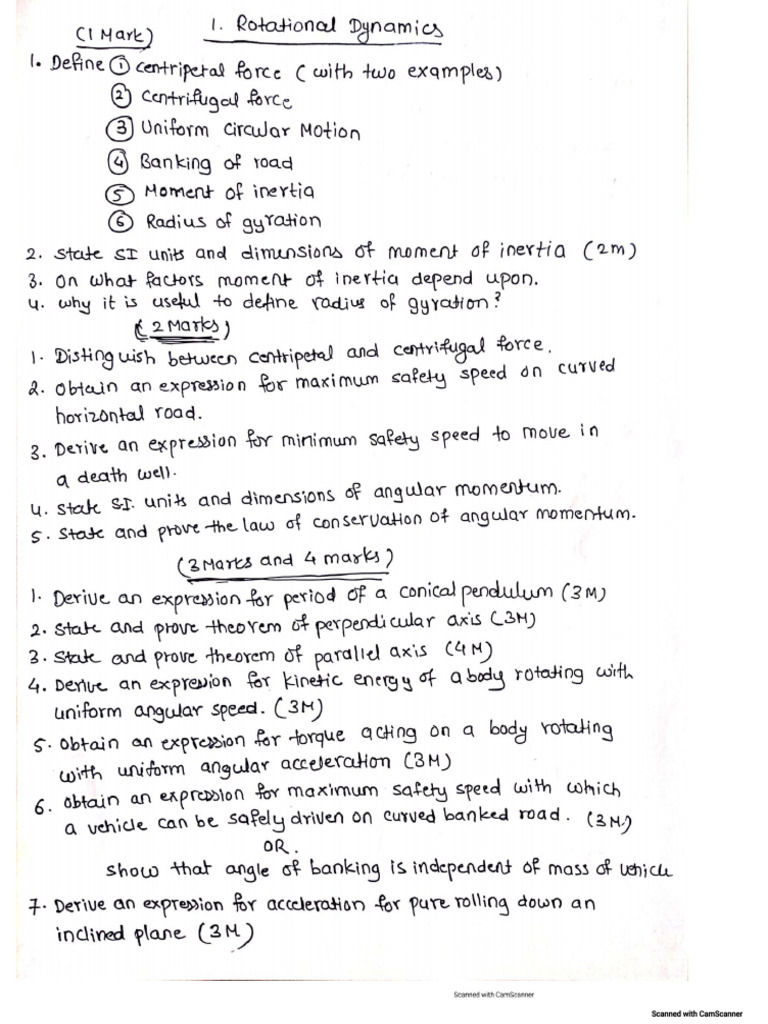 (1 Mark) 1. Rotational Dynamics
1. Define ① centripetal force (with two examples)
② Centrifugal force
③ Uniform Circular Motion
④ Banking of road
⑤ Moment of inertia
⑥ Radius of gyration
2. State SI units and dimensions of moment of inertia (2m)
3. On what factors moment of inertia depend upon.
4. Why it is useful to define radius of gyration?
(2 Marks)
1. Distinguish between centripetal and centrifugal force.
2. Obtain an expression for maximum safety speed on curved
horizontal road.
3. Derive an expression for minimum safety speed to move in
a death well.
4. State SI. units and dimensions of angular momentum.
5. State and prove the law of conservation of angular momentum.
(3 Marks and 4 marks)
1. Derive an expression for period of a conical pendulum (3M)
2. State and prove theorem of perpendicular axis (3M)
3. State and prove theorem of parallel axis (4M)
4. Derive an expression for kinetic energy of a body rotating with
uniform angular speed. (3M)
5. Obtain an expression for torque acting on a body rotating
with uniform angular acceleration (3M)
6. Obtain an expression for maximum safety speed with which
a vehicle can be safely driven on curved banked road. (3M)
OR.
Show that angle of banking is independent of mass of vehicle
7. Derive an expression for acceleration for pure rolling down an
inclined plane (3M)
Scanned with CamScanner
Scanned with CamScanner